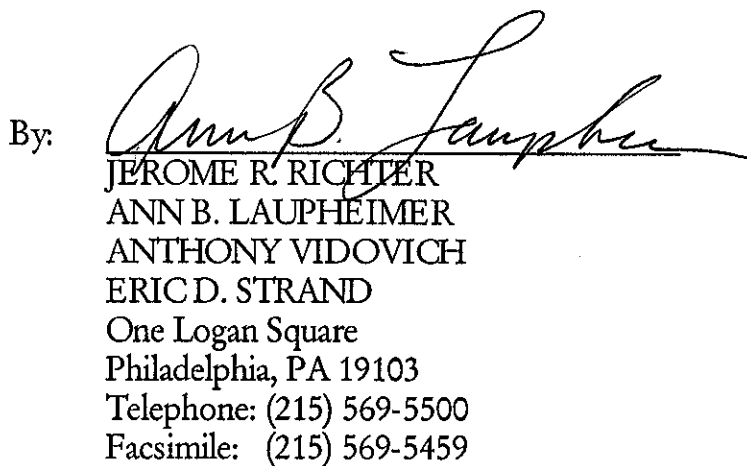 By: Ann B. Laupheimer
JEROME R. RICHTER
ANN B. LAUPHEIMER
ANTHONY VIDOVICH
ERIC D. STRAND
One Logan Square
Philadelphia, PA 19103
Telephone: (215) 569-5500
Facsimile: (215) 569-5459